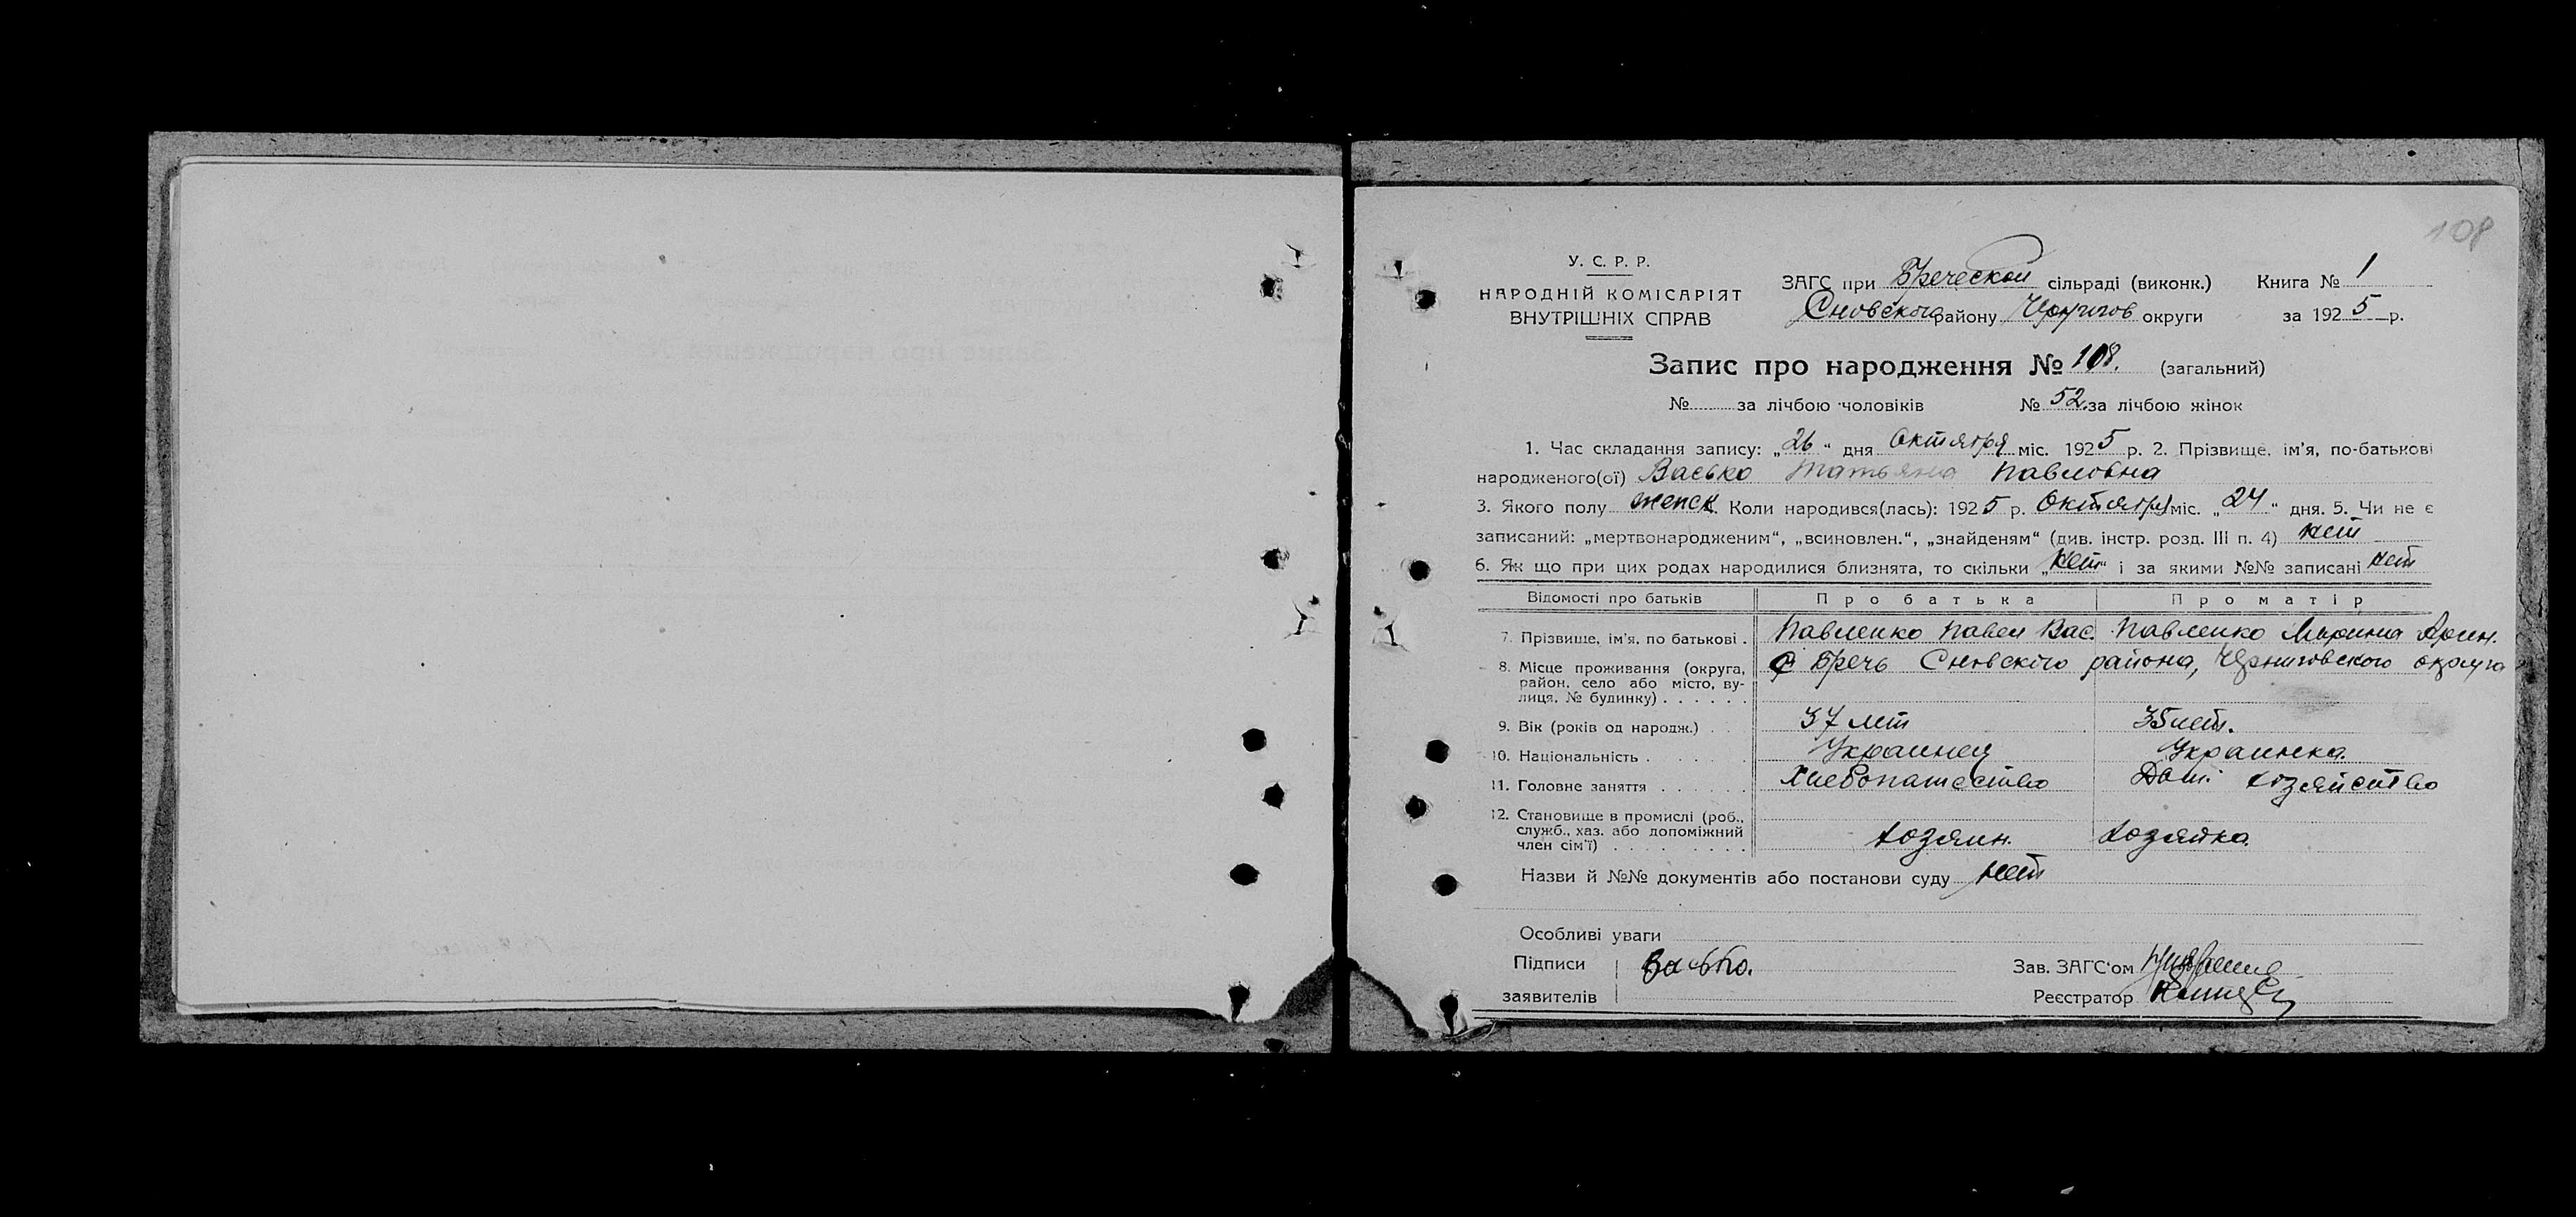 108
У. С. Р. Р.
НАРОДНІЙ КОМІСАРІЯТ
ВНУТРІШНІХ СПРАВ
ЗАГС при Бреческой сільраді (виконк.) Книга № 1
Сновского району Чернигов округи за 1925 р.
Запис про народження № 108. (загальний)
№ за лічбою чоловіків № 52. за лічбою жінок
1. Час складання запису: „26“ дня Октября міс. 1925 р. 2. Прізвище, ім'я, по-батькові
народженого(ої) Васько Татьяна Павловна
3. Якого полу женск. Коли народився(лась): 1925 р. Октября міс. „24“ дня. 5. Чи не є
записаний: „мертвонародженим“, „всиновлен.“, „знайденям“ (див. інстр. розд. III п. 4) нет
6. Як що при цих родах народилися близнята, то скільки „нет“ і за якими №№ записані нет
Відомості про батьків Про батька Про матір
7. Прізвище, ім'я, по батькові . Павленко Павел Вас. Павленко Марина
8. Місце проживання (округа, район, село або місто, вулиця, № будинку) . . . . . . С Бречь Сновского района, Черниговского округа
9. Вік (років од народж.) . . 37 лет 35 лет.
10. Національність . . . . . . Украинец Украинка.
11. Головне заняття . . . . . . Хлебопашество Дом. хозяйство
12. Становище в промислі (роб., служб., хаз. або допоміжний член сім'ї) . . . . . . . . . хозяин. хозяйка.
Назви й №№ документів або постанови суду нет
Особливі уваги
Підписи Васько. Зав. ЗАГС'ом
заявителів Реєстратор